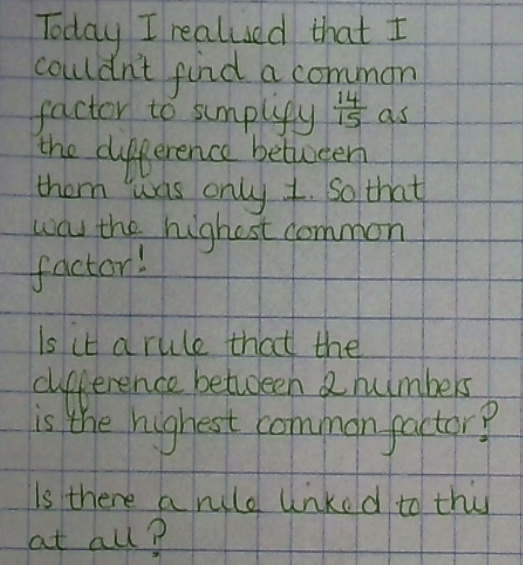 Today I realised that I
couldn't find a common
factor to simplify 14/15 as
the difference between
them was only 1. So that
was the highest common
factor!
Is it a rule that the
difference between 2 numbers
is the highest common factor?
Is there a rule linked to this
at all?